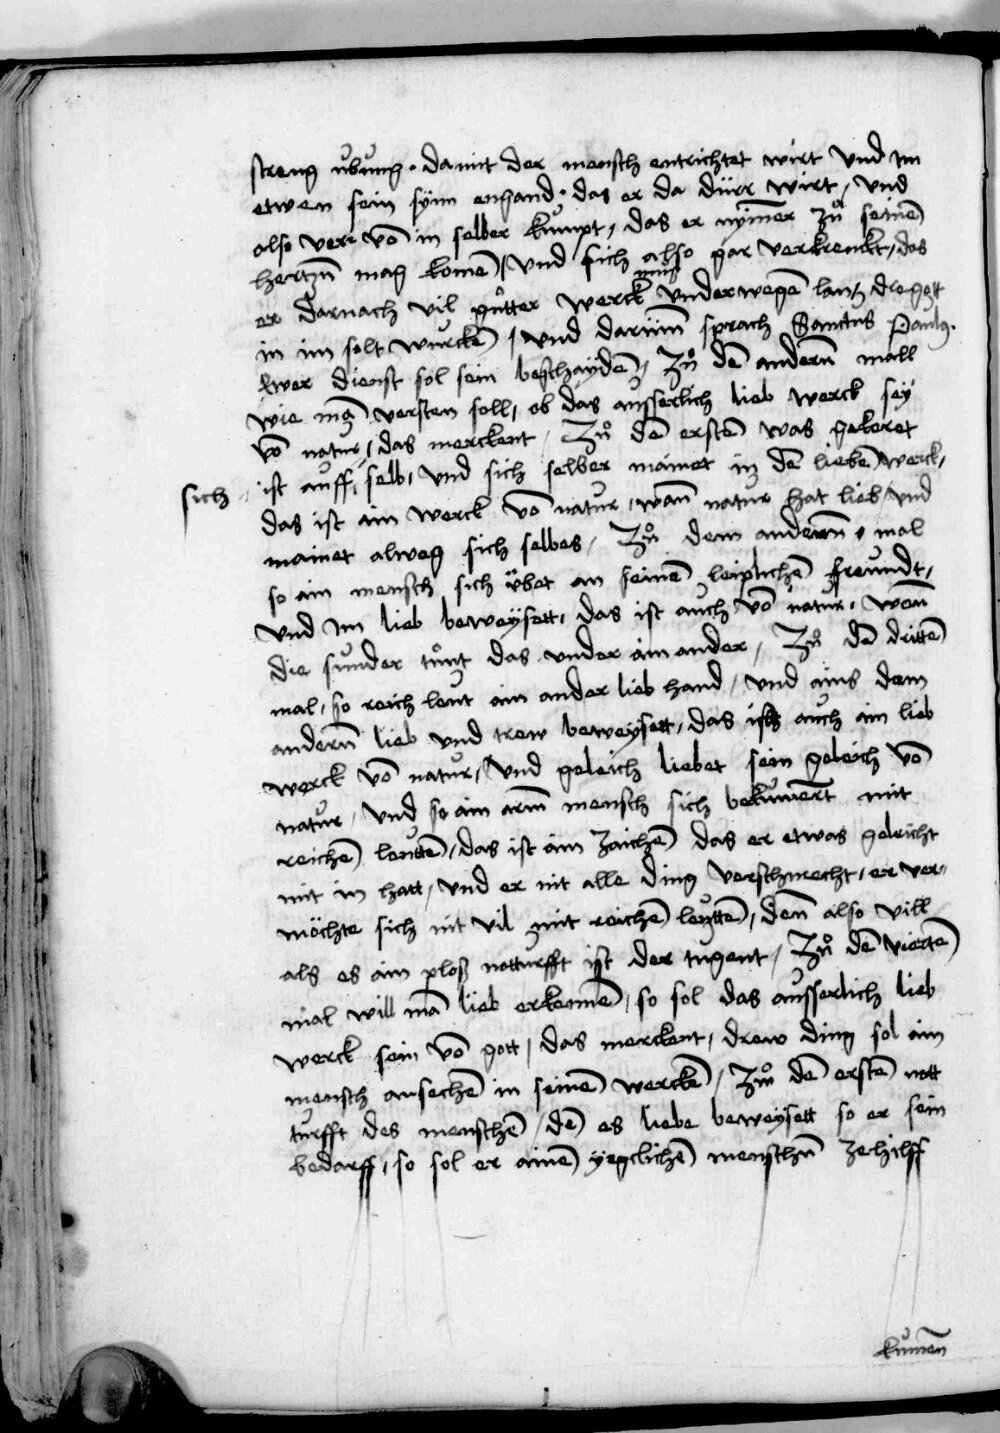 streng ubung · damit der mensch entrichtet wirt Vnd im
etwen sein synn engand · das er da dürr wirt / Vnd
also verr vō in selber kumpt / das er nymēr zů seinē
hertzn̄ mag komē / Vnd sich also gar verkrenckt / das
er darnach vil gůtter werck mus vnderwegē lan / die gott
in im solt wurckē / Vnd darūm sprach Sanctus Paulus ·
ewer dienst sol sein beschaydē / Zů dē andern̄ mall
wie mā versten soll / ob das ausserlich lieb werck sey
vō natur / das merckent / Zů dē erstē was gekeret
sich ist auff selb / Vnd sich selber mainet in dē liebē werck /
das ist ain werck vō natur / wan̄ natur hat lieb / vnd
mainet alweg sich selbes / Zů dem andern̄ mal
so ain mensch sich übet an seinē leiplichē freundt /
Vnd im lieb beweysett / das ist auch vō natur / wen̄
die sunder tůnt das vnder ain ander / Zů dē drittē
mal / so reich leut ain ander lieb hand / vnd ains dem
andern̄ lieb vnd trew beweysett / das ist auch ain lieb
werck vō natur / Vnd geleich liebet sein geleich vō
natur / Vnd so ain arm̄ mensch sich bekumert mit
reichē leuttē / das ist ain zaichē das er etwas geleicht
mit in hatt / Vnd er nit alle ding verschmecht / er ver-
möchte sich nit vil mit reichē leyttē / den̄ also vill
als es ain ploß notturfft ist der tugent / Zů dē viertē
mal will mā lieb erkennē / so sol das ausserlich lieb
werck sein vō gott / das merckent / drew ding sol ain
mensch ansechē in seinē werckē / Zů dē erstē nott
turfft des menschē / dē es liebe beweysett so er sein
bedarff / so sol er ainē yegclichē menschn̄ zehilff
kumen̄